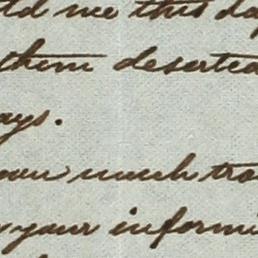 told me this day
them deserted
ays.
you much tro
your informi